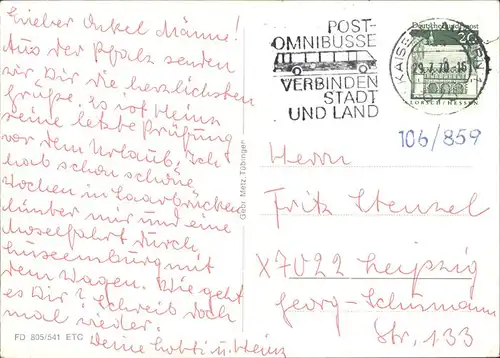 Lieber Onkel Männe!
Aus der Pfalz senden
wir Dir die herzlichsten
Grüße. Es ist Heinz
seine letzte Prüfung
vor dem Urlaub. Ich
hab schon schöne
Wochen in Saarbrücken
hinter mir und eine
Moselfahrt durch
Luxemburg mit
dem Wagen. Wie geht
es Dir? Schreib doch
mal wieder.
Deine Lotti u. Heinz
FD 805/541 ETC
Gebr. Metz, Tübingen
POST-
OMNIBUSSE
VERBINDEN
STADT
UND LAND
Deutsche Bundespost
20
KAISE
7.70-15
LORSCH/HESSEN
106/859
Herrn
Fritz Stenzel
X7022 Leipzig
Georg-Schumann
Str. 133